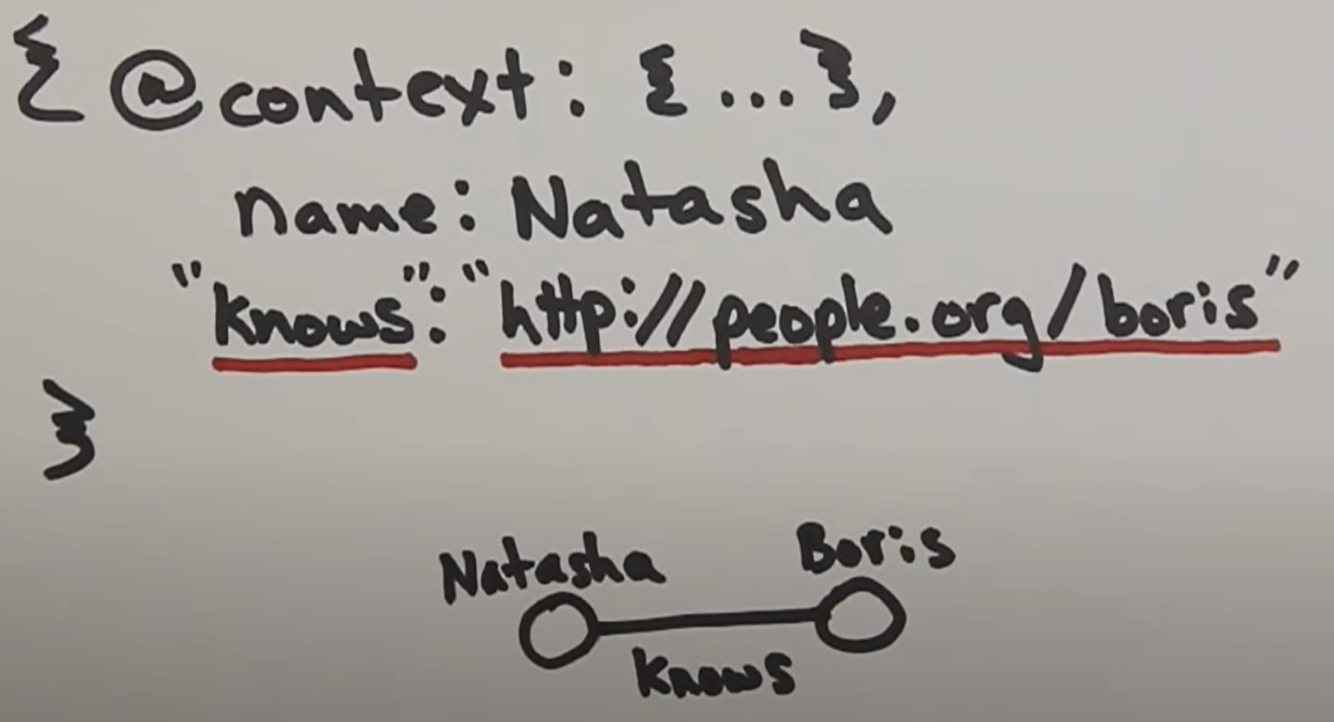 { @context: {...},
name: Natasha
"knows": "http://people.org/boris"
}
Natasha Boris
knows